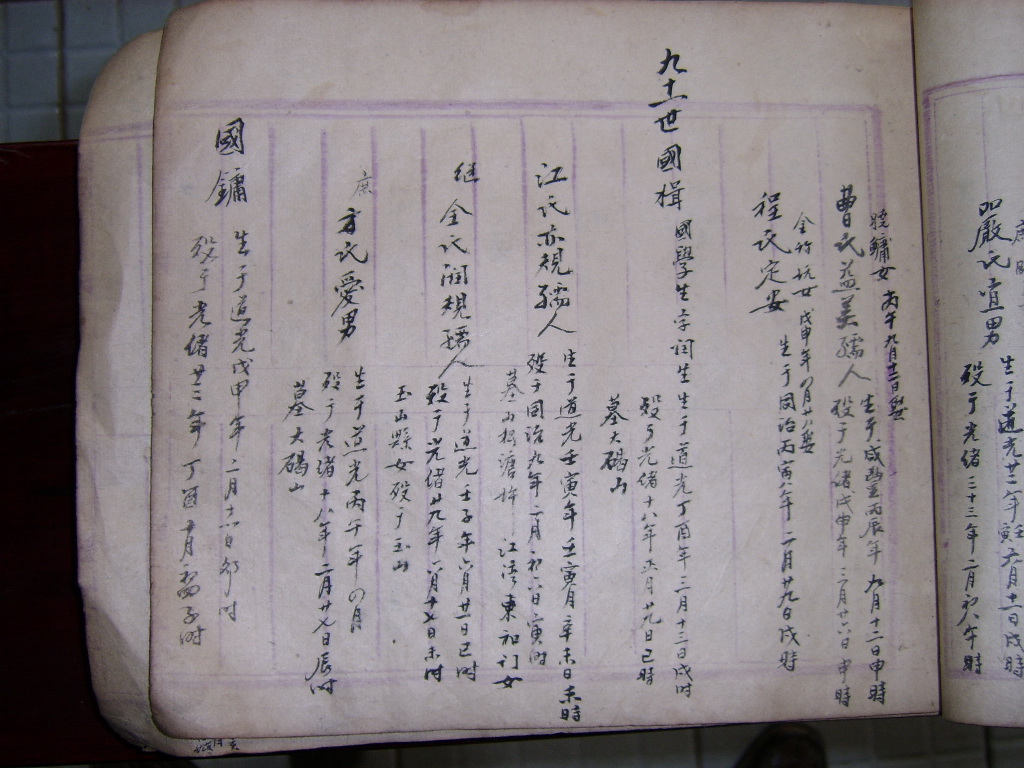 嚴氏直男
生于道光廿二年
月十一日戌時
殁于光緒三十三年二月初八午時
鏞女 丙午九月十二日娶
曹氏益美孺人
生于咸豐丙辰年九月十二日申時
殁于光緒戊申年三月廿六日申時
金竹坑女 戊申年四月廿八娶
程氏定安
生于同治丙寅年二月廿九日戌時
九十一世國楫 國學生字潤生生于道光丁酉年三月十三日戌时
殁于光緒十八年正月廿九日巳時
墓大碣山
江氏亦規孺人
生于道光壬寅年壬寅月辛未日未時
殁于同治九年二月初六日寅时
墓山松塘 江灣東和
女
继金氏潤規孺人
生于道光壬子年六月廿一日巳时
殁于光緒廿九年八月十七日未时
玉山縣女殁于玉山
庶方氏愛男
生于道光丙午年四月
殁于光緒十八年二月廿七日辰时
墓大碣山
國鏞
生于道光戊申年二月十六日卯时
殁于光緒廿三年丁酉十月
子时